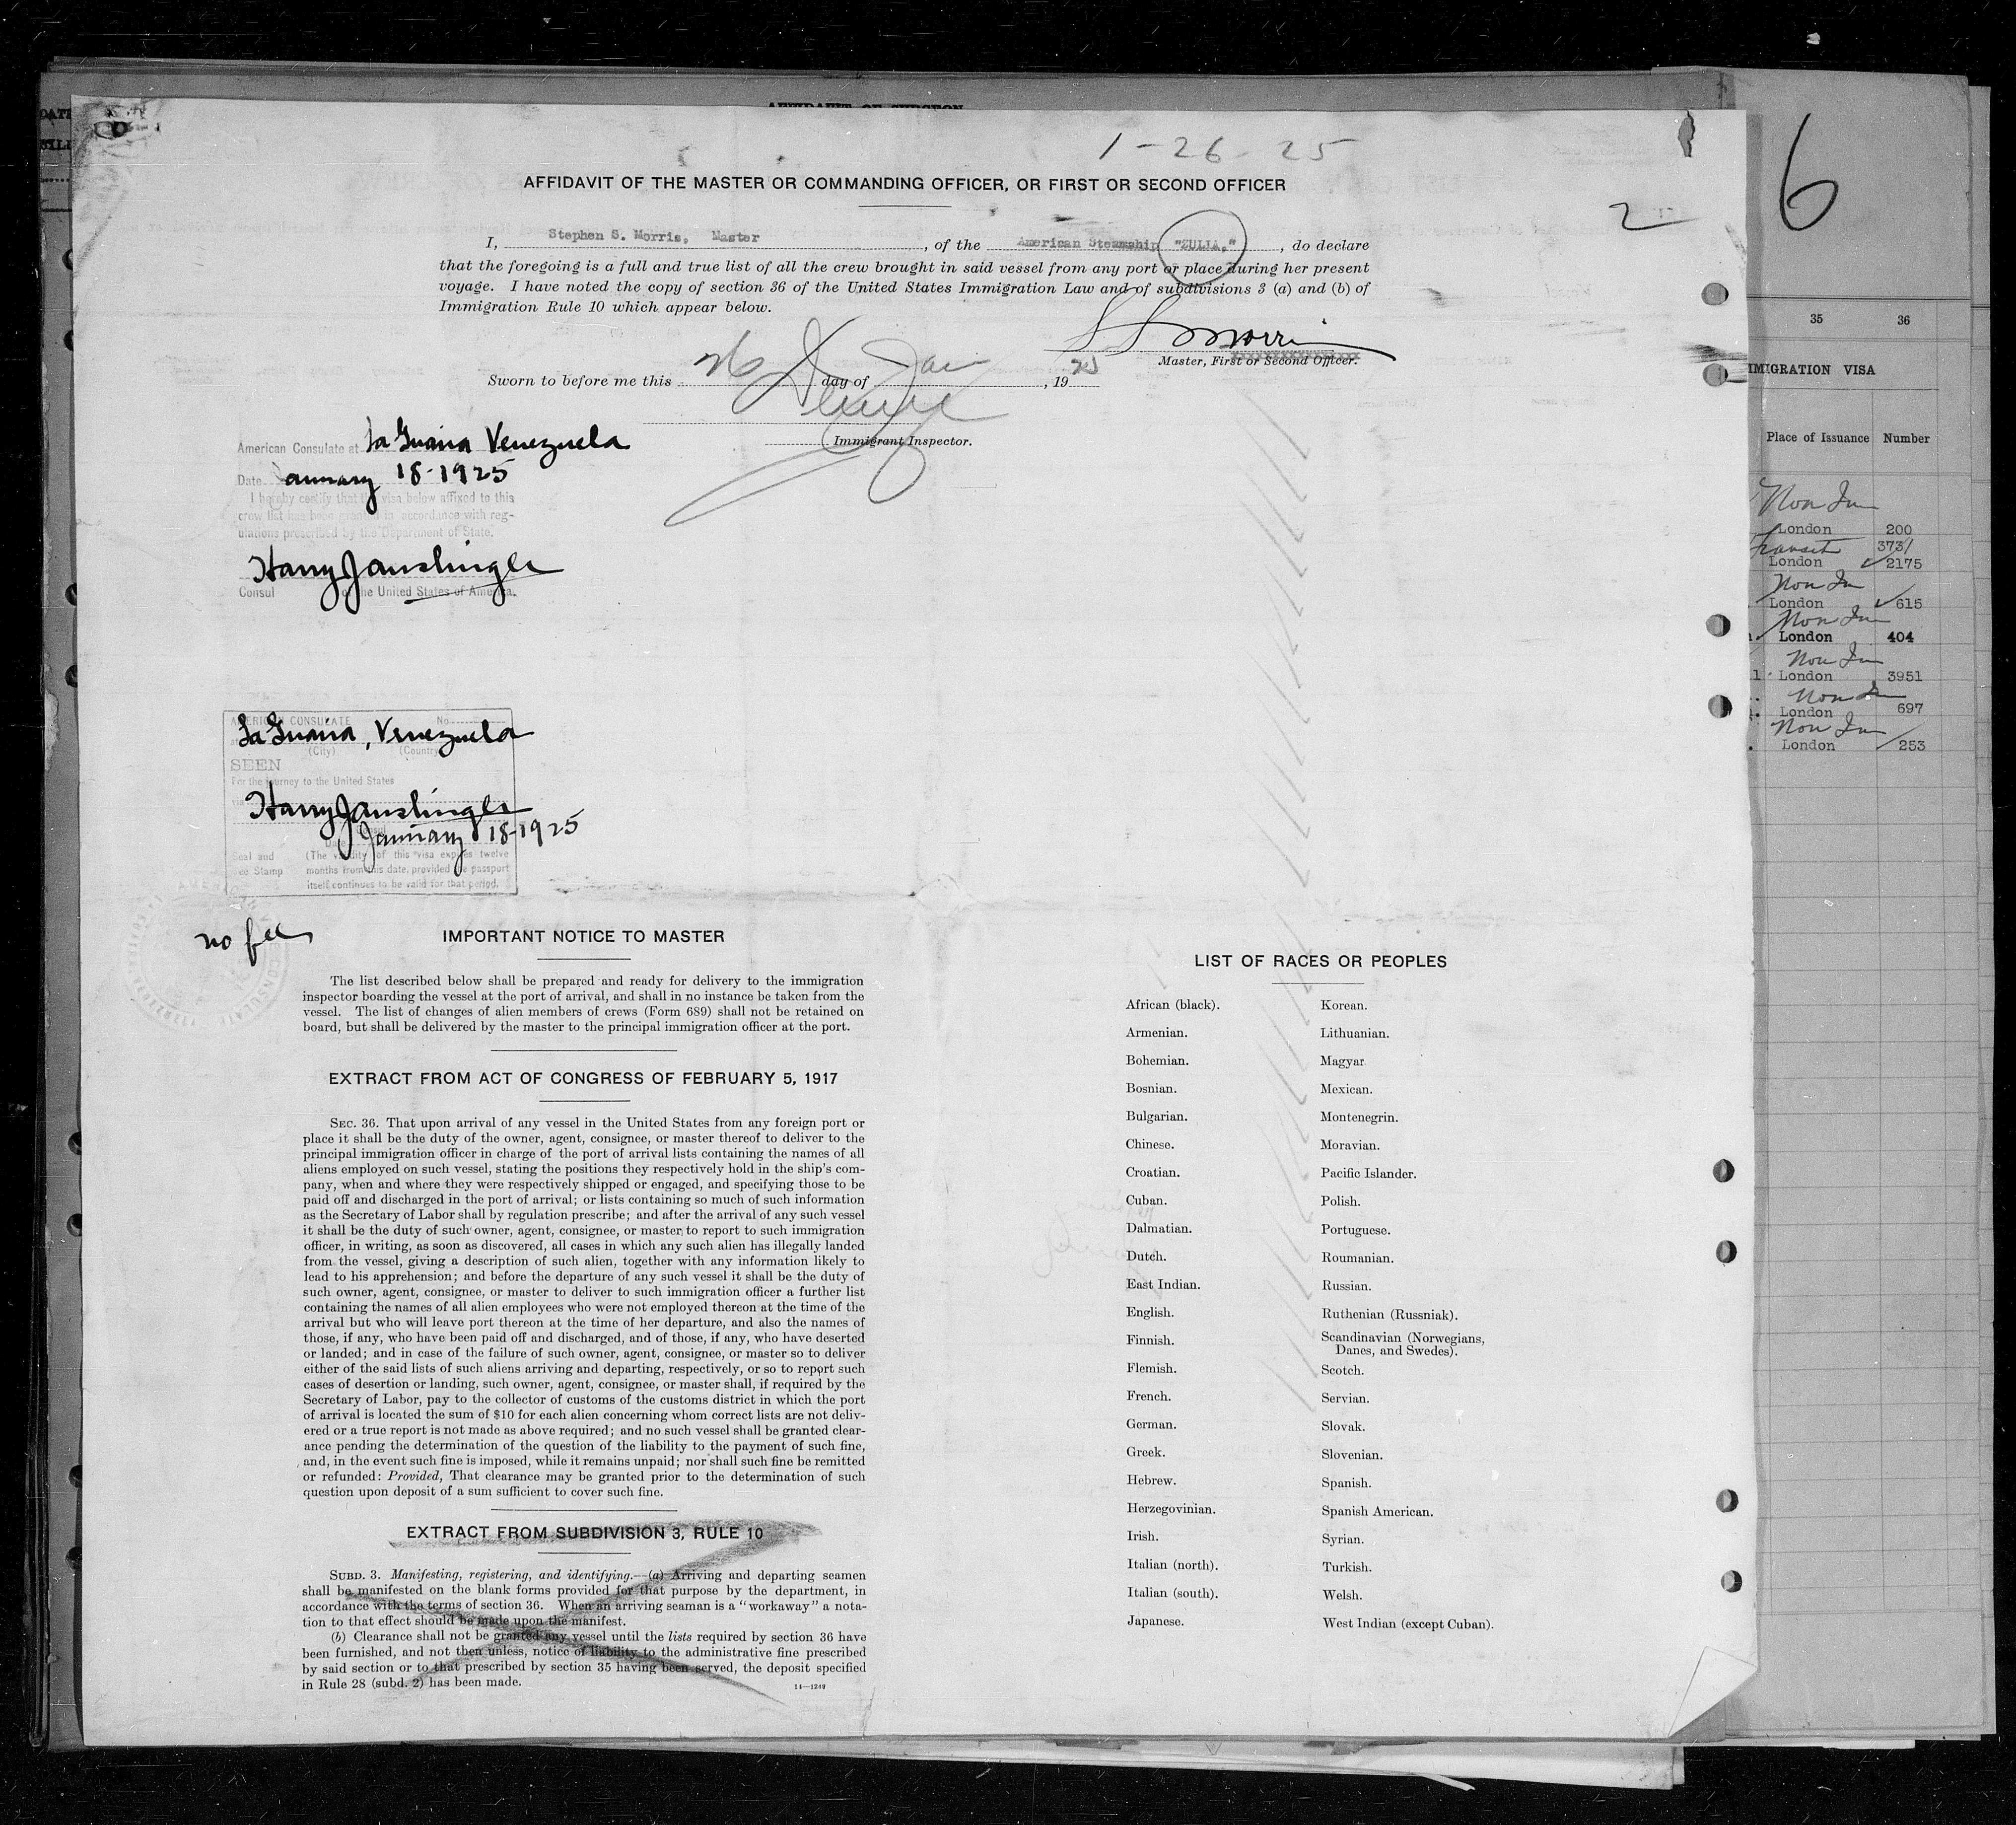 AFFIDAVIT OF SURGEON
1-26-25
AFFIDAVIT OF THE MASTER OR COMMANDING OFFICER, OR FIRST OR SECOND OFFICER
2
6
I, Stephen S. Morris, Master, of the American Steamship "ZULIA," , do declare
that the foregoing is a full and true list of all the crew brought in said vessel from any port or place during her present
voyage. I have noted the copy of section 36 of the United States Immigration Law and of subdivisions 3 (a) and (b) of
Immigration Rule 10 which appear below.
S S Morris
Master, First or Second Officer.
Sworn to before me this 26 day of Jan, 1925
Immigrant Inspector.
American Consulate at La Guaira Venezuela
Date January 18-1925
I hereby certify that the visa below affixed to this
crew list has been granted in accordance with reg-
ulations prescribed by the Department of State.
Harry J Anslinger
Consul of the United States of America.
AMERICAN CONSULATE No
La Guaira, Venezuela
(City) (Country)
SEEN
For the journey to the United States
via
Harry J Anslinger
Consul
Date January 18-1925
Seal and
Fee Stamp
(The validity of this visa expires twelve
months from this date, provided the passport
itself continues to be valid for that period.
no fee
IMPORTANT NOTICE TO MASTER
The list described below shall be prepared and ready for delivery to the immigration
inspector boarding the vessel at the port of arrival, and shall in no instance be taken from the
vessel. The list of changes of alien members of crews (Form 689) shall not be retained on
board, but shall be delivered by the master to the principal immigration officer at the port.
EXTRACT FROM ACT OF CONGRESS OF FEBRUARY 5, 1917
SEC. 36. That upon arrival of any vessel in the United States from any foreign port or
place it shall be the duty of the owner, agent, consignee, or master thereof to deliver to the
principal immigration officer in charge of the port of arrival lists containing the names of all
aliens employed on such vessel, stating the positions they respectively hold in the ship's com-
pany, when and where they were respectively shipped or engaged, and specifying those to be
paid off and discharged in the port of arrival; or lists containing so much of such information
as the Secretary of Labor shall by regulation prescribe; and after the arrival of any such vessel
it shall be the duty of such owner, agent, consignee, or master to report to such immigration
officer, in writing, as soon as discovered, all cases in which any such alien has illegally landed
from the vessel, giving a description of such alien, together with any information likely to
lead to his apprehension; and before the departure of any such vessel it shall be the duty of
such owner, agent, consignee, or master to deliver to such immigration officer a further list
containing the names of all alien employees who were not employed thereon at the time of the
arrival but who will leave port thereon at the time of her departure, and also the names of
those, if any, who have been paid off and discharged, and of those, if any, who have deserted
or landed; and in case of the failure of such owner, agent, consignee, or master so to deliver
either of the said lists of such aliens arriving and departing, respectively, or so to report such
cases of desertion or landing, such owner, agent, consignee, or master shall, if required by the
Secretary of Labor, pay to the collector of customs of the customs district in which the port
of arrival is located the sum of $10 for each alien concerning whom correct lists are not deliv-
ered or a true report is not made as above required; and no such vessel shall be granted clear-
ance pending the determination of the question of the liability to the payment of such fine,
and, in the event such fine is imposed, while it remains unpaid; nor shall such fine be remitted
or refunded: Provided, That clearance may be granted prior to the determination of such
question upon deposit of a sum sufficient to cover such fine.
EXTRACT FROM SUBDIVISION 3, RULE 10
SUBD. 3. Manifesting, registering, and identifying.—(a) Arriving and departing seamen
shall be manifested on the blank forms provided for that purpose by the department, in
accordance with the terms of section 36. When an arriving seaman is a "workaway" a nota-
tion to that effect should be made upon the manifest.
(b) Clearance shall not be granted any vessel until the lists required by section 36 have
been furnished, and not then unless, notice of liability to the administrative fine prescribed
by said section or to that prescribed by section 35 having been served, the deposit specified
in Rule 28 (subd. 2) has been made.
14—1249
LIST OF RACES OR PEOPLES
African (black).
Armenian.
Bohemian.
Bosnian.
Bulgarian.
Chinese.
Croatian.
Cuban.
Dalmatian.
Dutch.
East Indian.
English.
Finnish.
Flemish.
French.
German.
Greek.
Hebrew.
Herzegovinian.
Irish.
Italian (north).
Italian (south).
Japanese.
Korean.
Lithuanian.
Magyar
Mexican.
Montenegrin.
Moravian.
Pacific Islander.
Polish.
Portuguese.
Roumanian.
Russian.
Ruthenian (Russniak).
Scandinavian (Norwegians,
Danes, and Swedes).
Scotch.
Servian.
Slovak.
Slovenian.
Spanish.
Spanish American.
Syrian.
Turkish.
Welsh.
West Indian (except Cuban).
35 36
IMMIGRATION VISA
Place of Issuance Number
Non Im
London 200
Transit 3731
London 2175
Non Im
London 615
Non Im
London 404
Non Im
London 3951
Non Im
London 697
Non Im
London 253